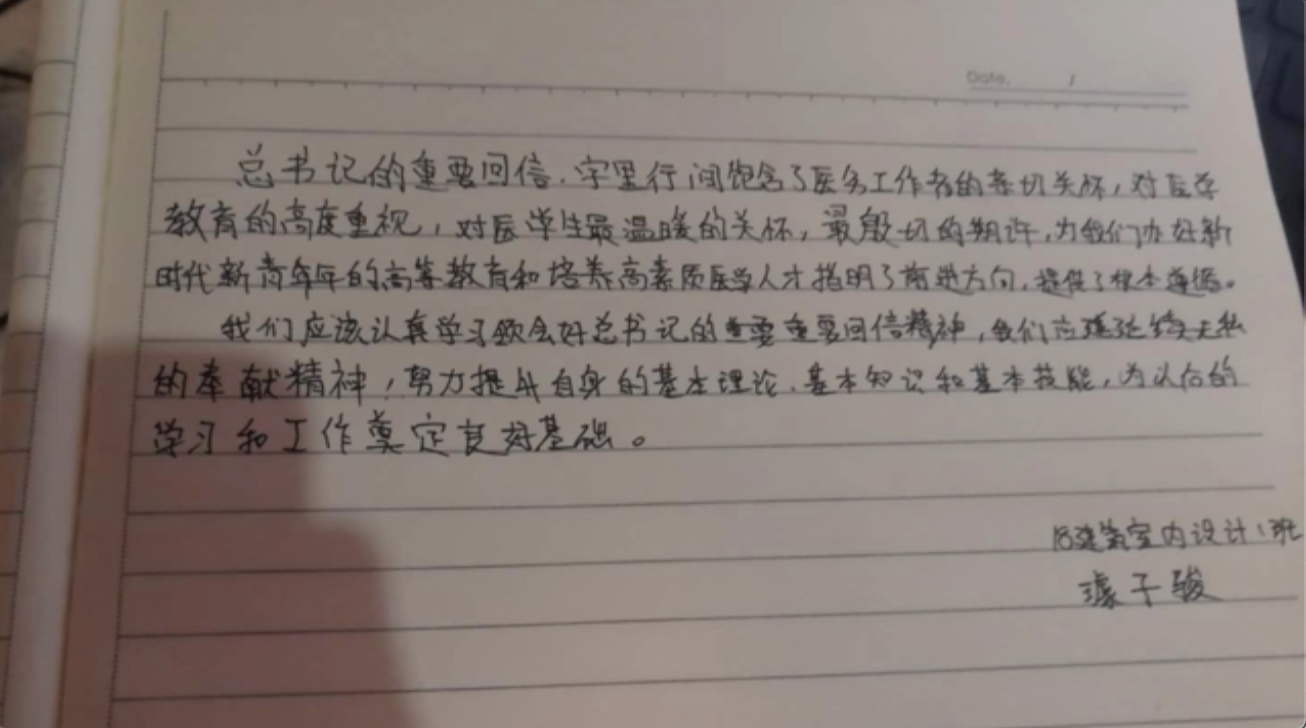 Date. /
总书记的重要回信.字里行间饱含了医务工作者的亲切关怀,对医学
教育的高度重视,对医学生最温暖的关怀,最殷切的期许,为我们办好新
时代新青年年的高等教育和培养高素质医学人才指明了前进方向,提供了根本遵循。
我们应该认真学习领会好总书记的重要重要回信精神,我们应无私
的奉献精神,努力提升自身的基本理论.基本知识和基本技能,为以后的
学习和工作奠定良好基础。
18建筑室内设计1班
子骏